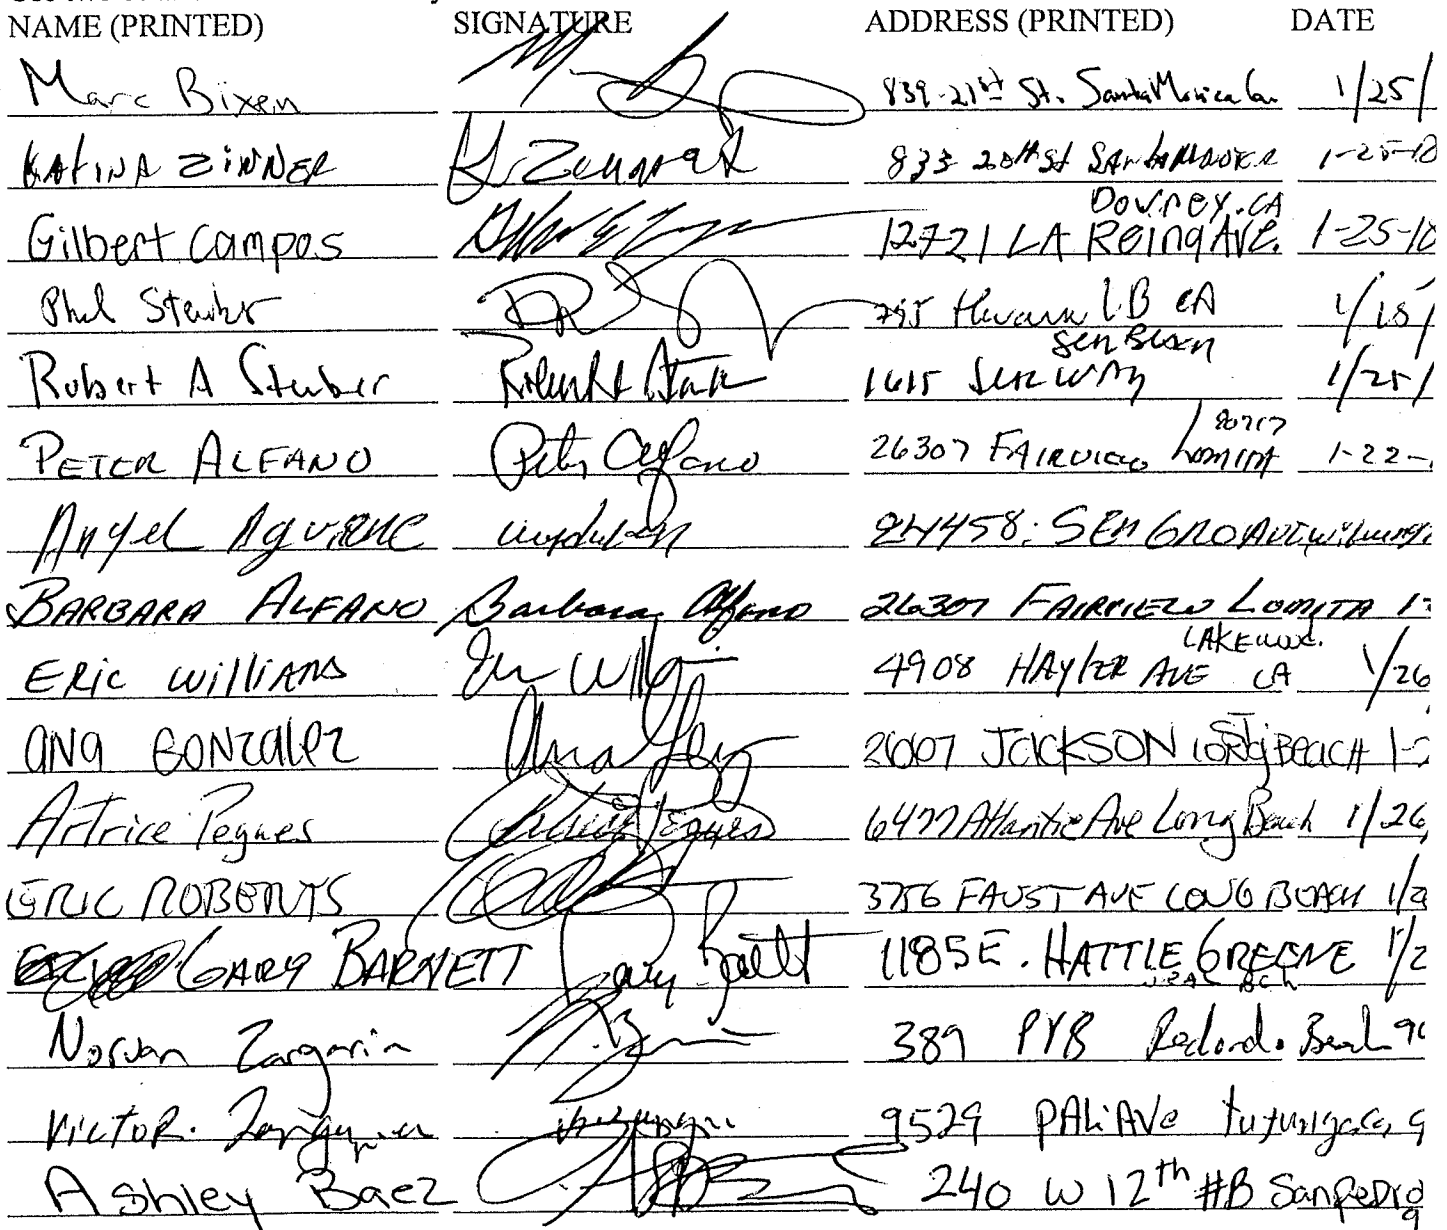 NAME (PRINTED) SIGNATURE ADDRESS (PRINTED) DATE
Marc Bixen 839-21st St. Santa Monica Ca 1/25/
KATINA ZINNER 833 20th St SANTA MONICA 1-25-10
Downey.CA
Gilbert Campos 12721 LA Reina AVE. 1-25-10
Phil Steuber LB CA
Robert A Steuber 1615 1/25/
90717
PETER ALFANO Peter Alfano 26307 FAIRVIEW LOMITA 1-22-
Angel Aguirre 24458
BARBARA ALFANO Barbara Alfano 26307 FAIRVIEW LOMITA 1-
LAKEWOOD.
ERic WilliAMS 4908 HAYTER AVE CA 1/26
ana GONZalez Ana 2607 JaCKSON ST LONG BEACH 1-
Artrice Pegues Artrice Pegues 6477 Atlantic Ave Long Beach 1/26
ERIC ROBERTS 3756 FAUST AVE LONG BEACH 1/2
GARY BARNETT Gary Barnett 1185 E. HATTIE GREENE 1/2
Norvan Zargarian 389 Redondo Beach 90
VICTOR. 9529 PALi AVe tujunga, Ca, 9
AShley Baez 240 W 12th #B San Pedro
9